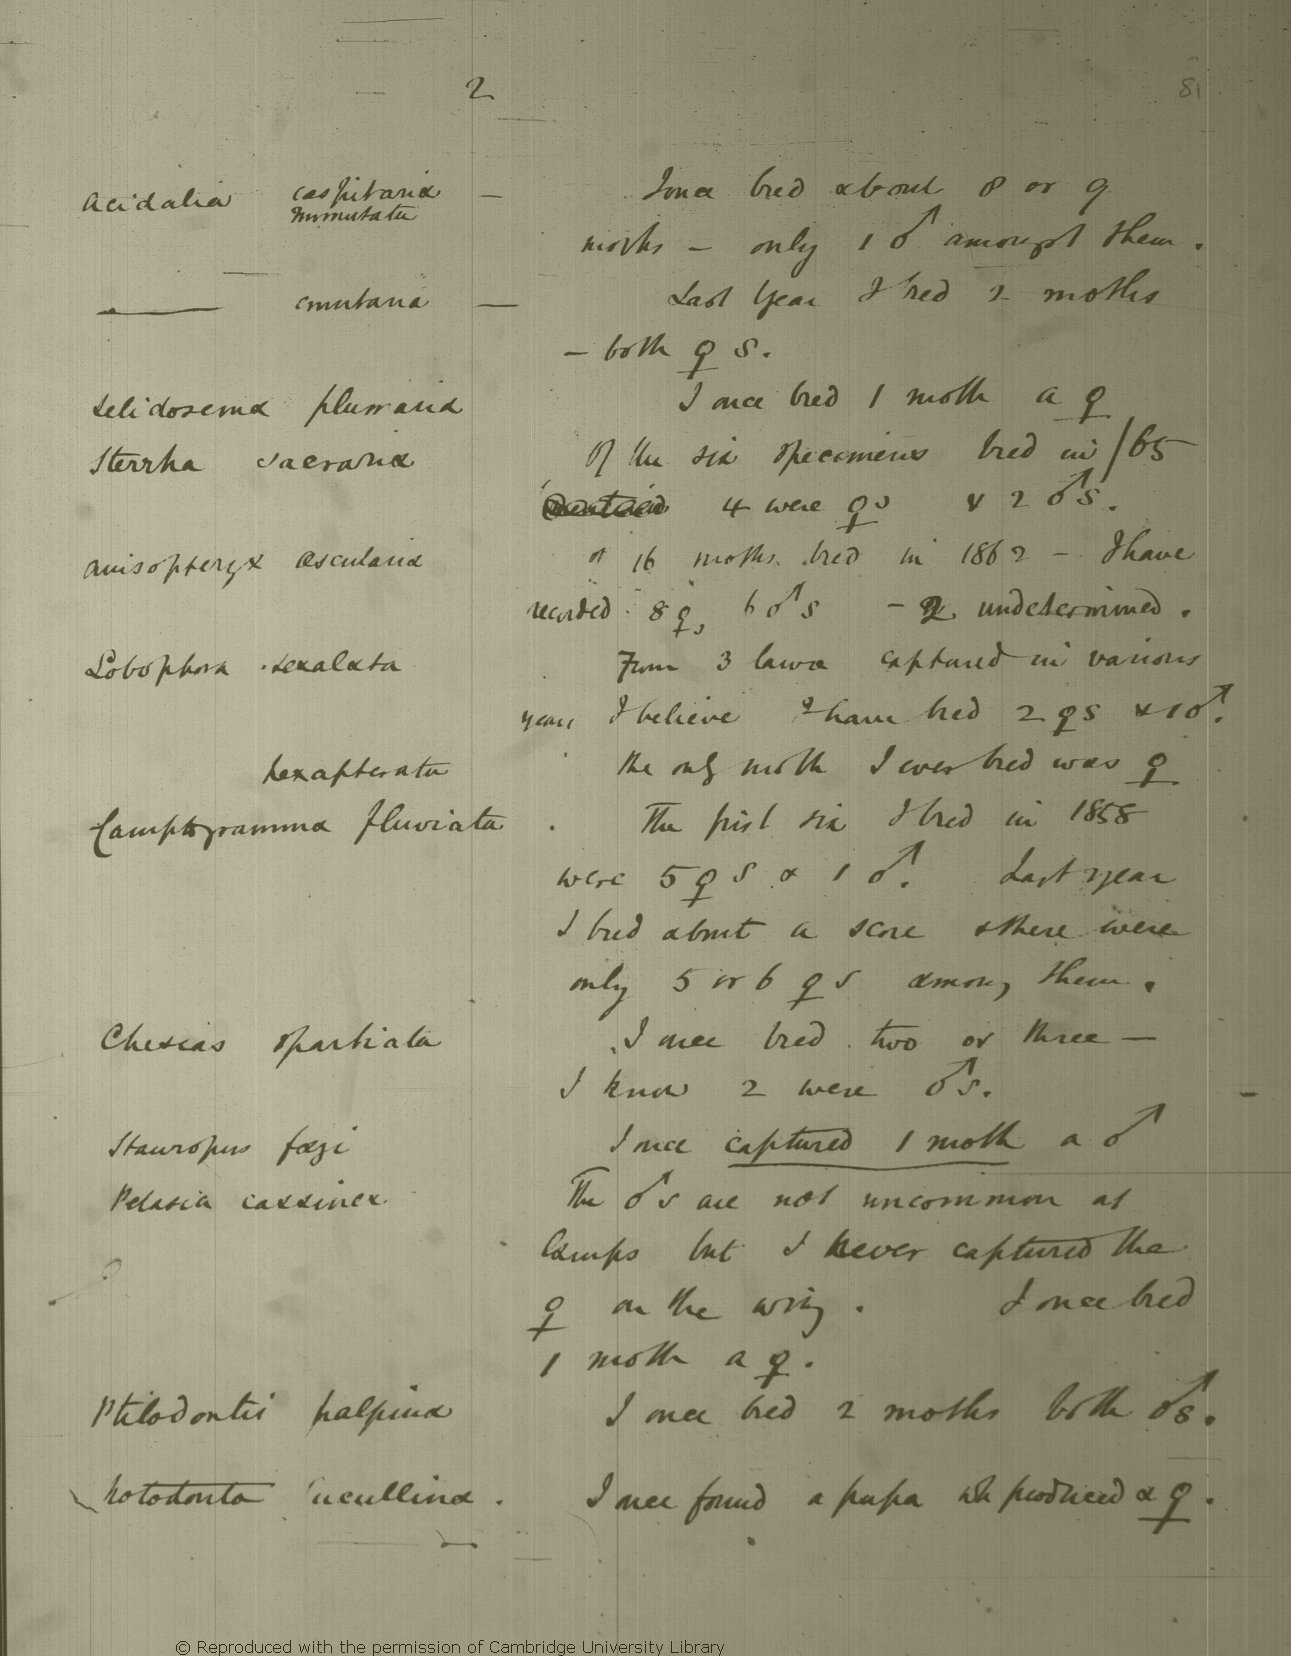 2
81
Acidalia caspitaria — I once bred about 8 or 9
mimutata
moths — only 1 ♂ amongst them.
——— emutaria — Last year I bred 2 moths
— both ♀ s.
Selidosema plumaria I once bred 1 moth a ♀
Sterrha sacraria Of the six specimens bred in /65
4 were ♀s & 2 ♂s.
Anisopteryx Æscularia of 16 moths bred in 1862 — I have
recorded 8 ♀s 6 ♂s — 2 undetermined.
Lobophora sexalata From 3 larvæ captured in various
years I believe I have bred 2 ♀s & 1 ♂.
hexapterata the only moth I ever bred was ♀
Camptogramma fluviata. The first six I bred in 1858
were 5 ♀s & 1 ♂. Last year
I bred about a score & there were
only 5 or 6 ♀s among them.
Chesias spartiata I once bred two or three —
I know 2 were ♂s.
Stauropus fagi I once captured 1 moth a ♂
Petasia cassinea The ♂s are not uncommon at
lamps but I never captured the
♀ on the wing. I once bred
1 moth a ♀.
Ptilodontis palpina I once bred 2 moths both ♂s.
Notodonta cucullina. I once found a pupa wh produced a ♀.
© Reproduced with the permission of Cambridge University Library